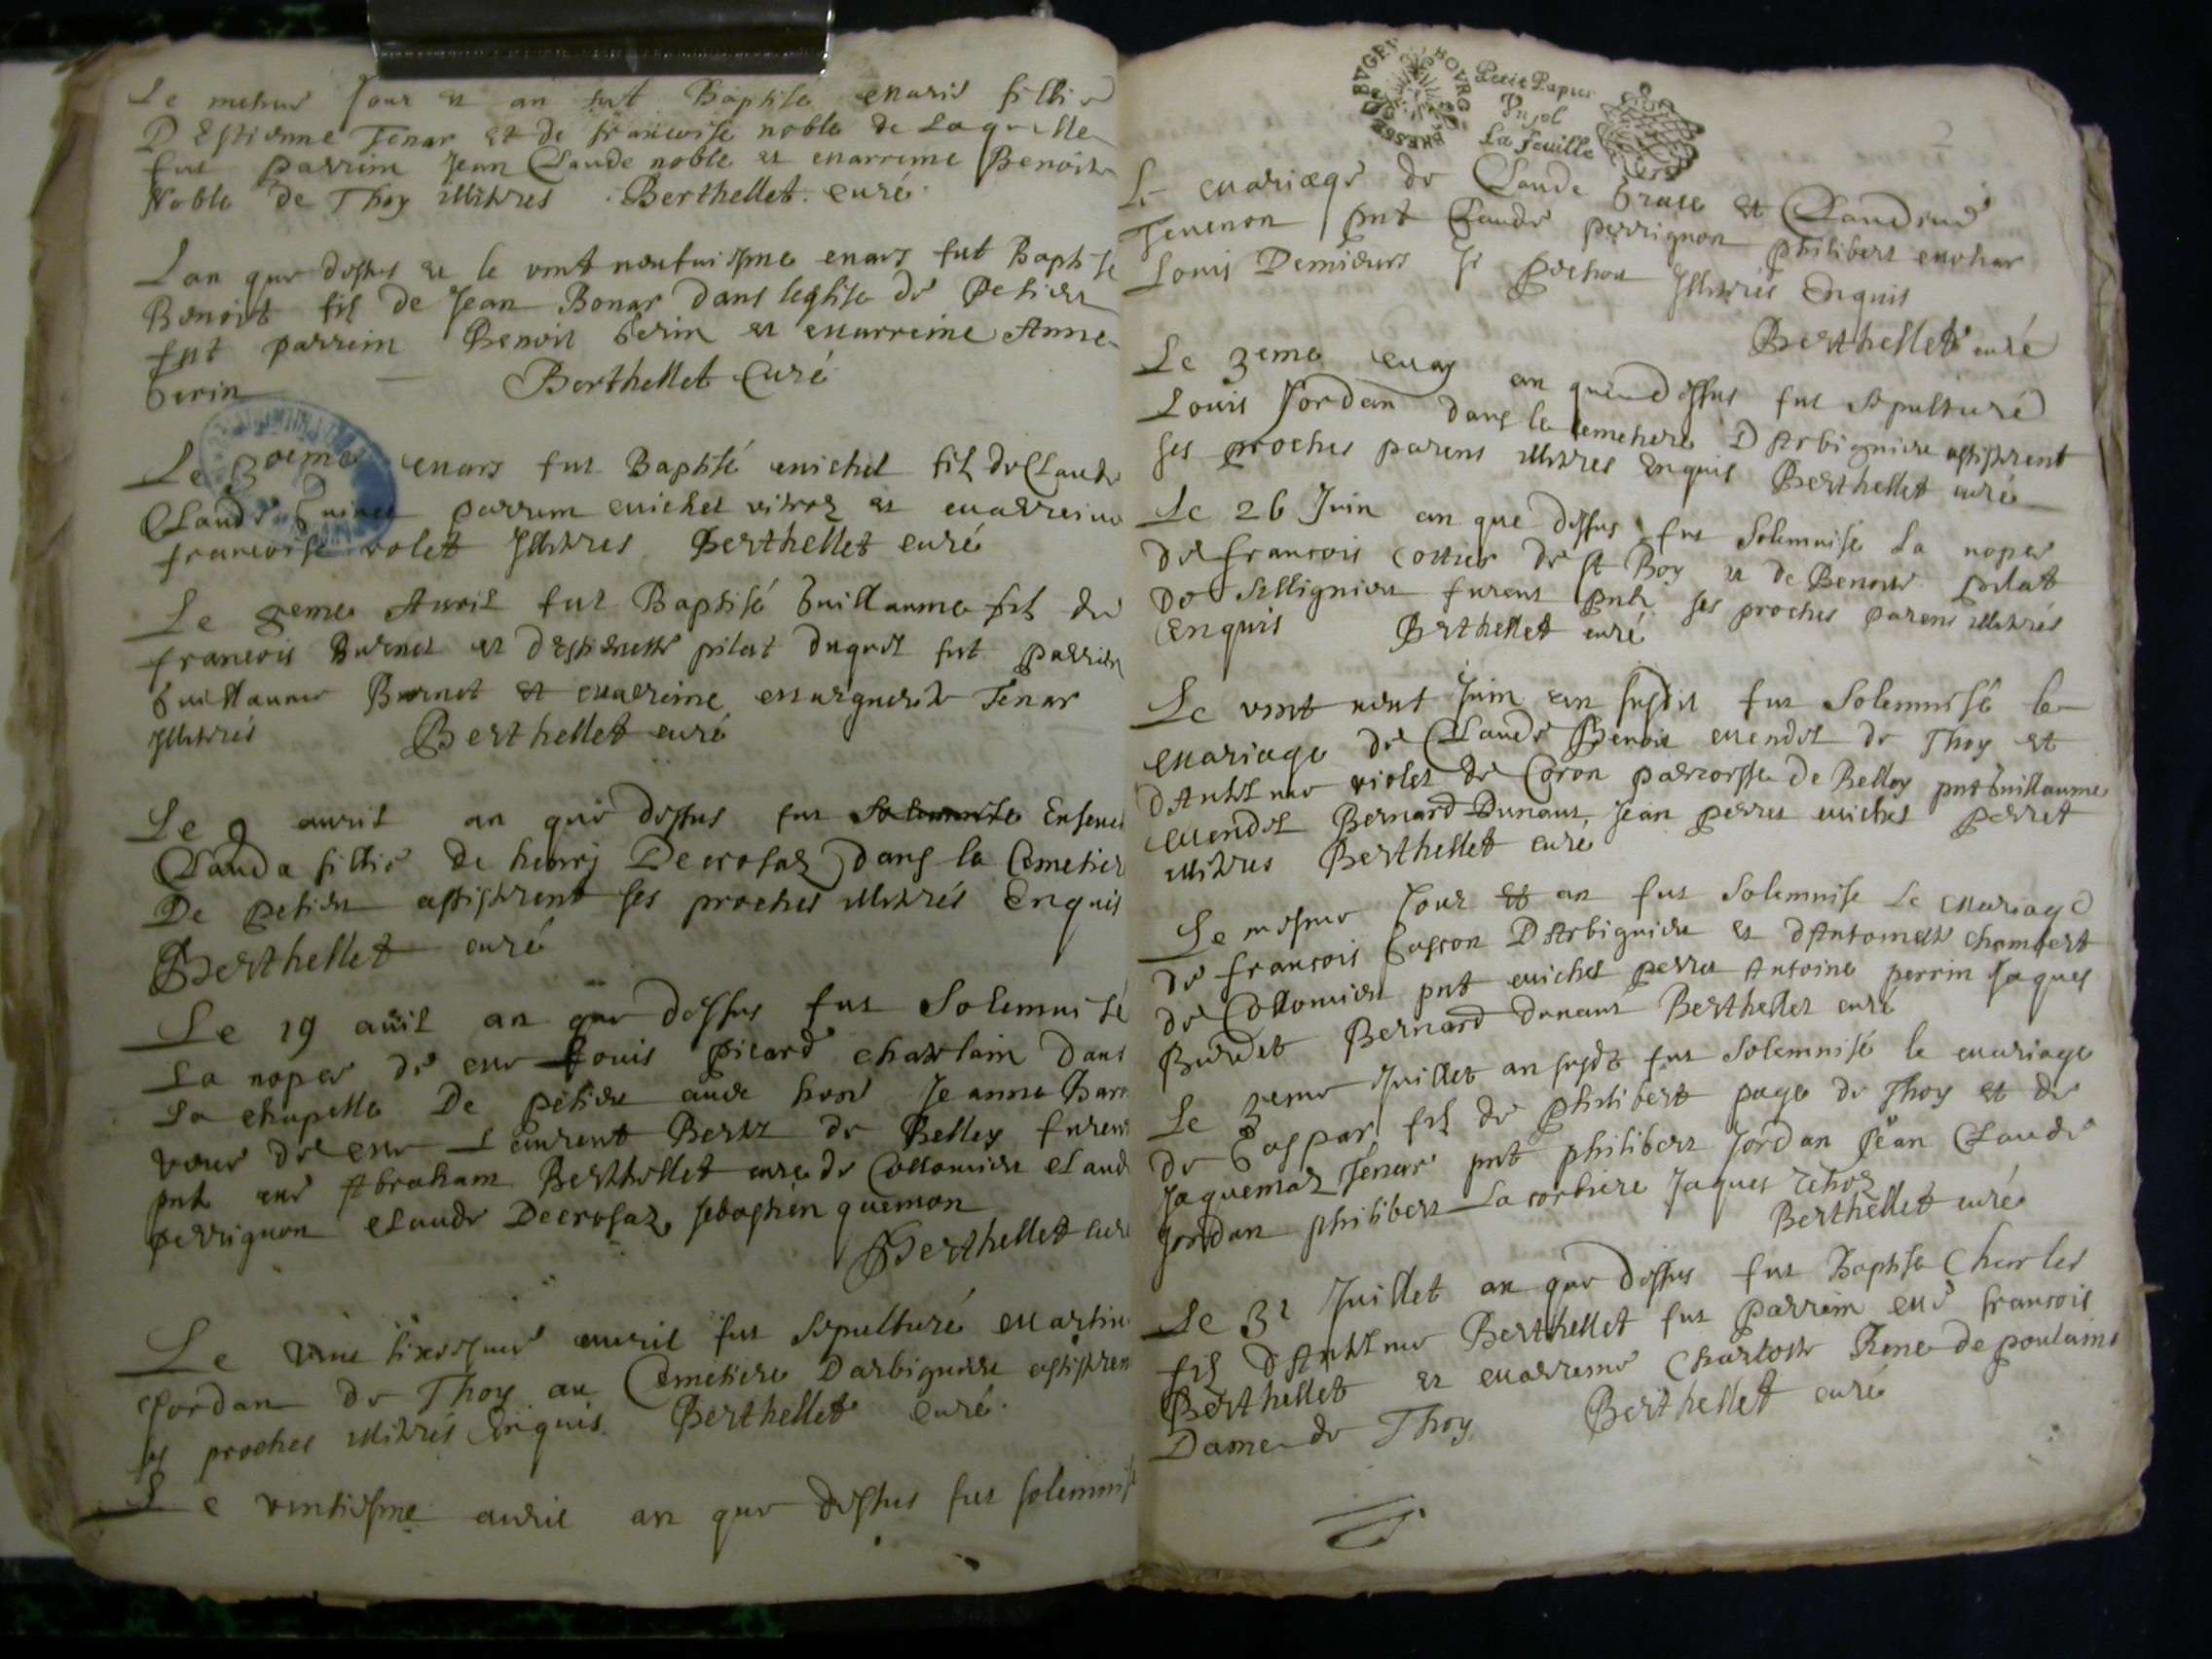 Le mesme Jour et an fut Baptisé marie fillie
D Estienne Tenar et de francoise noble de
fut parrin Jean Claude noble et marreine Benoite
Noble de Thoy illitres Berthellet curé
Lan que dessus et le vint neufuiesme mars fut Baptisé
Benoist fil de Jean Bonar dans leglise de Petieu
fut parrein Benoit Gerin et marreine Anne
Gerin Berthellet Curé
Le 30eme mars fut Baptisé michel fil de Claude
Claude parrein michel et marreine
francoise volet Illitres Berthellet curé
Le 8eme Auril fut Baptisé Guillaume fil de
francois Burnet et destienette pilat duquel fut parrein
Guillaume Burnet et marreine marguerite Tenar
Illitrés Berthellet curé
Le 9 auril an que dessus fut Enseueli
Clauda fillie de henry Decrosaz dans la Cemetiere
De petieu assisterent ses proches illitrés Enquis
Berthellet curé
Le 19 auil an que dessus fut Solemnisé
La nopce de mre Louis picard chastelain dans
La chapelle De petieu auec hone Jeanne
veuue de mre Laurent de Belley furent
pnts mre Abraham Berthellet cure de Collomieu Claude
perrignon Claude Decrosaz sebastien quemon
Berthellet curé
Le vint sixiesme auril fut sepulturé martin
Jordan de Thoy au Cemetiere Darbignieu assisterent
ses proches illitrés Enquis Berthellet curé
Le vintiesme auril an que dessus fut solemnisé
BRESSE BVGEY BOVRG
Petit Papier
Vn sol
La feuille
Le mariage de Claude et Claudine
Teuenon pnt Claude perrignon philibert mochar
Louis Demieurs Jllitrés Enquis
Berthellet curé
Le 3eme may an que dessus fut sepulturé
Louis Jordan dans le cemetiere D Arbignieu assisterent
ses proches parens illitres Enquis Berthellet curé
Le 26 Juin an que dessus fut Solemnisé La nopce
de francois Cottier de st Boy et de Benoite pilat
de Sillignieu furent pnts ses proches parens illitrés
Enquis Berthellet curé
Le vint neuf Juin an susdit fut Solemnisé le
mariage de Claude Benoit mendet de Thoy et
dAnthme violet de Coron parroisse de Belley pnt Guillaume
mendet Bernard Dunant, Jean perret michel perret
illitres Berthellet curé
Le mesme Jour et an fut Solemnisé Le mariage
de francois Gascon DArbignieu et dAntoinette chambert
de Collomieu pnt michel perret Antoine perrin Jaques
Burdet Bernard dunant Berthellet curé
Le 3eme Juillet an susdt fut Solemnisé le mariage
de Gaspar fil de philibert page de Thoy et de
Jaquemaz Tenar pnt philibert Jordan Jean Claude
Jordan philibert Lacorbiere Jaques
Berthellet curé
Le 31 Juillet an que dessus fut Baptisé Charles
fil dAnthme Berthellet fut parrein mre francois
Berthellet et marreine Charlotte Rene de poulains
Dame de Thoy Berthellet curé